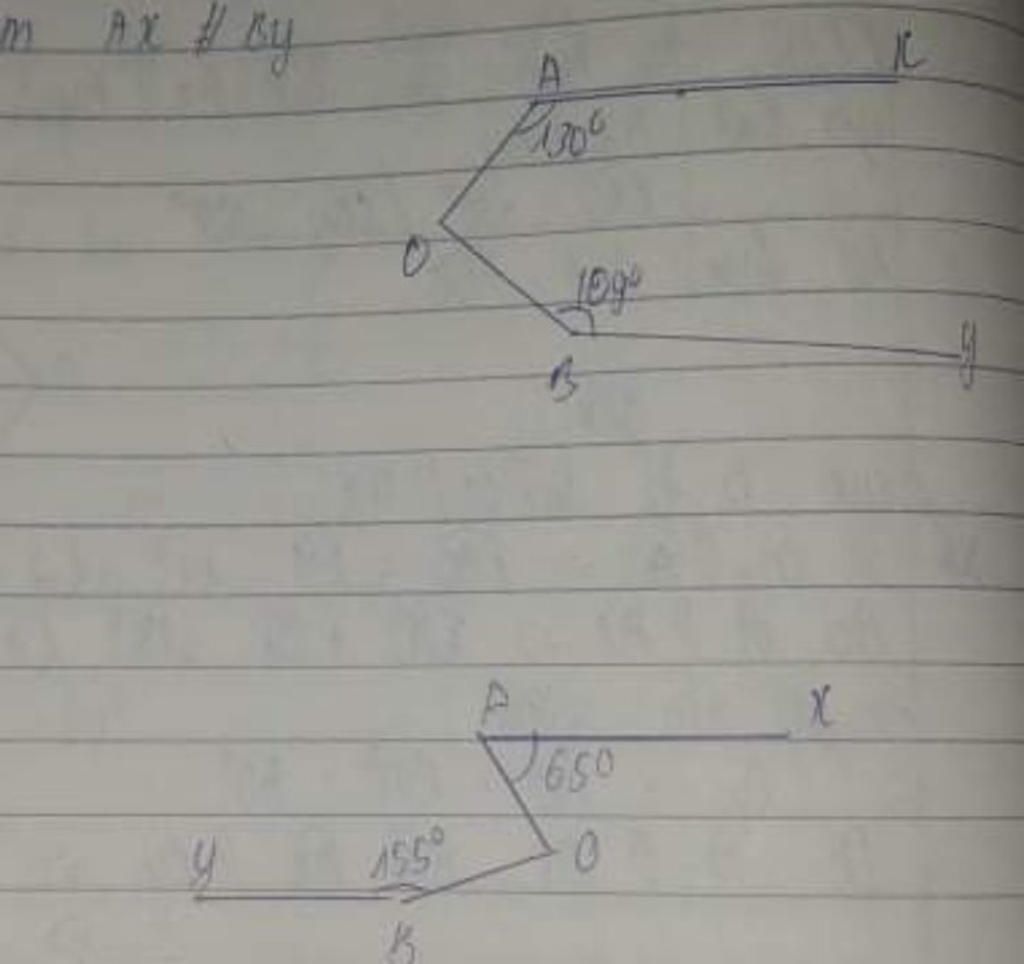 m AX // By
A x
130°
O
109°
B y
A x
65°
O
y 155°
B